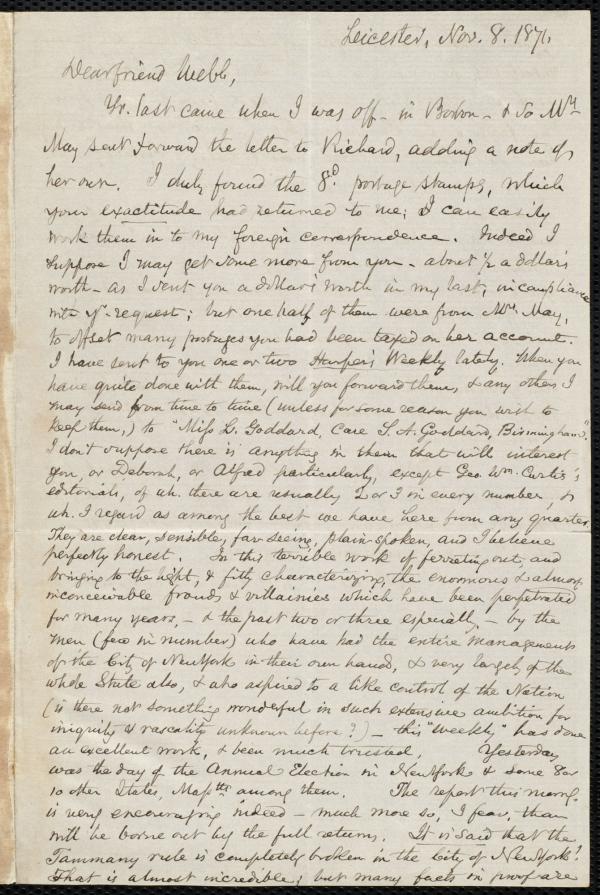 Leicester, Nov. 8. 1871.
Dear friend Webb,
Yr. last came when I was off - in Boston - & so Mrs.
May sent forward the letter to Richard, adding a note of
her own. I duly found the 8d. postage stamps, which
your exactitude had returned to me; I can easily
work them in to my foreign correspondence. Indeed I
suppose I may get some more from you - about 1/2 a dollar's
worth - as I sent you a dollar's worth in my last, in compliance
with yr. request; but one half of them were from Mrs. May,
to offset many postages you had been taxed on her account.
I have sent to you one or two Harper's Weekly lately. When you
have quite done with them, will you forward them, & any others I
may send from time to time (unless for some reason you wish to
keep them,) to "Miss L. Goddard, Care S. A. Goddard, Birmingham."
I don't suppose there is anything in them that will interest
you, or Deborah, or Alfred particularly, except Geo. Wm. Curtis's
editorials, of wh. there are usually 2 or 3 in every number, &
wh. I regard as among the best we have here from any quarter.
They are clear, sensible, far seeing, plain-spoken, and I believe
perfectly honest. In this terrible work of ferreting out, and
bringing to the light, & fitly characterizing, the enormous & almost
inconceivable frauds & villainies which have been perpetrated
for many years, - & the past two or three especially - by the
men (few in number) who have had the entire management
of the City of New York in their own hand, & very largely of the
whole State also, & who aspired to a like control of the Nation
(is there not something wonderful in such extensive ambition for
iniquity & rascality unknown before?) - this "Weekly" has done
an excellent work, & been much trusted. Yesterday
was the day of the Annual Election in New York & some 8 or
10 other States, Masstts. among them. The report this morng.
is very encouraging indeed - much more so, I fear, than
will be borne out by the full returns. It is said that the
Tammany rule is completely broken in the City of New York!
That is almost incredible; but many facts in proof are